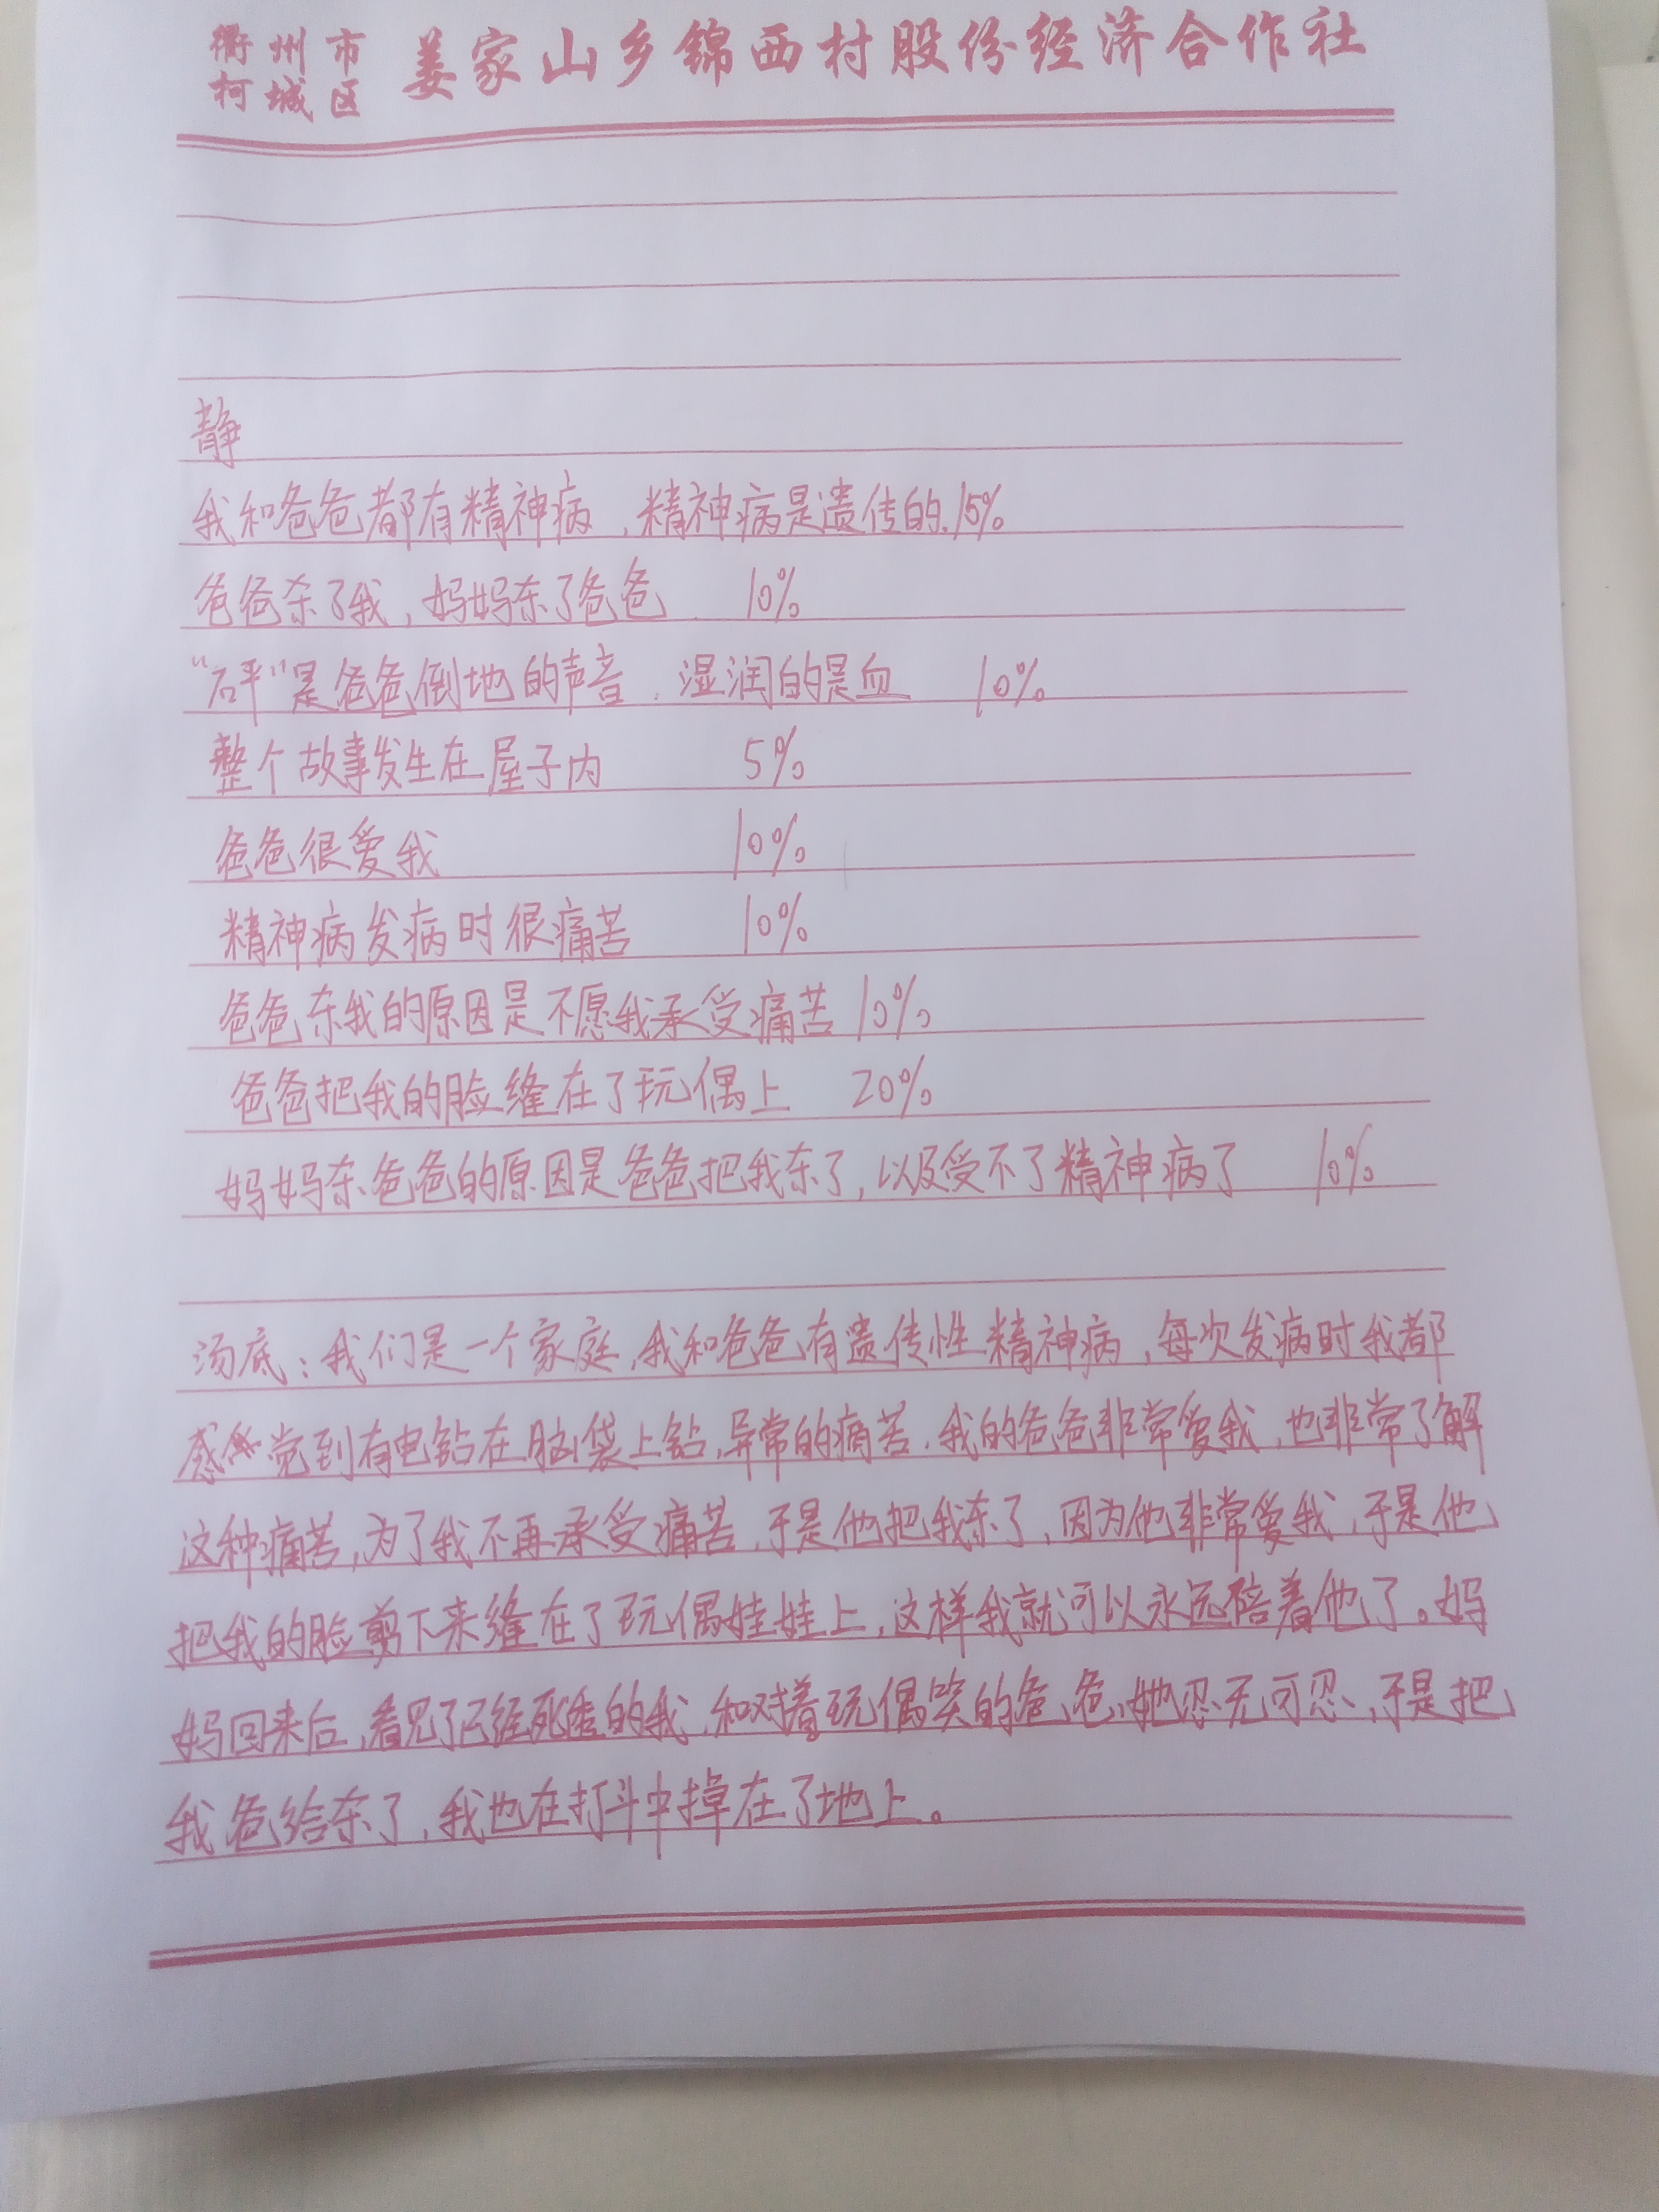 衢州市
柯城区
姜家山乡锦西村股份经济合作社
静
我和爸爸都有精神病，精神病是遗传的.15%
爸爸东了我，妈妈东了爸爸 10%
“砰”是爸爸倒地的声音，湿润的是血 10%
整个故事发生在屋子内 5%
爸爸很爱我 10%
精神病发病时很痛苦 10%
爸爸东我的原因是不愿我承受痛苦 10%
爸爸把我的脸缝在了玩偶上 20%
妈妈东爸爸的原因是爸爸把我东了，以及受不了精神病了 10%
汤底：我们是一个家庭，我和爸爸有遗传性精神病，每次发病时我都
感觉到有电钻在脑袋上钻，异常的痛苦，我的爸爸非常爱我，也非常了解
这种痛苦，为了我不再承受痛苦，于是他把我东了，因为他非常爱我，于是他
把我的脸剪下来缝在了玩偶娃娃上，这样我就可以永远陪着他了。妈
妈回来后，看见了已经死透的我，和对着玩偶笑的爸爸，她忍无可忍，于是把
我爸给东了，我也在打斗中掉在了地上。